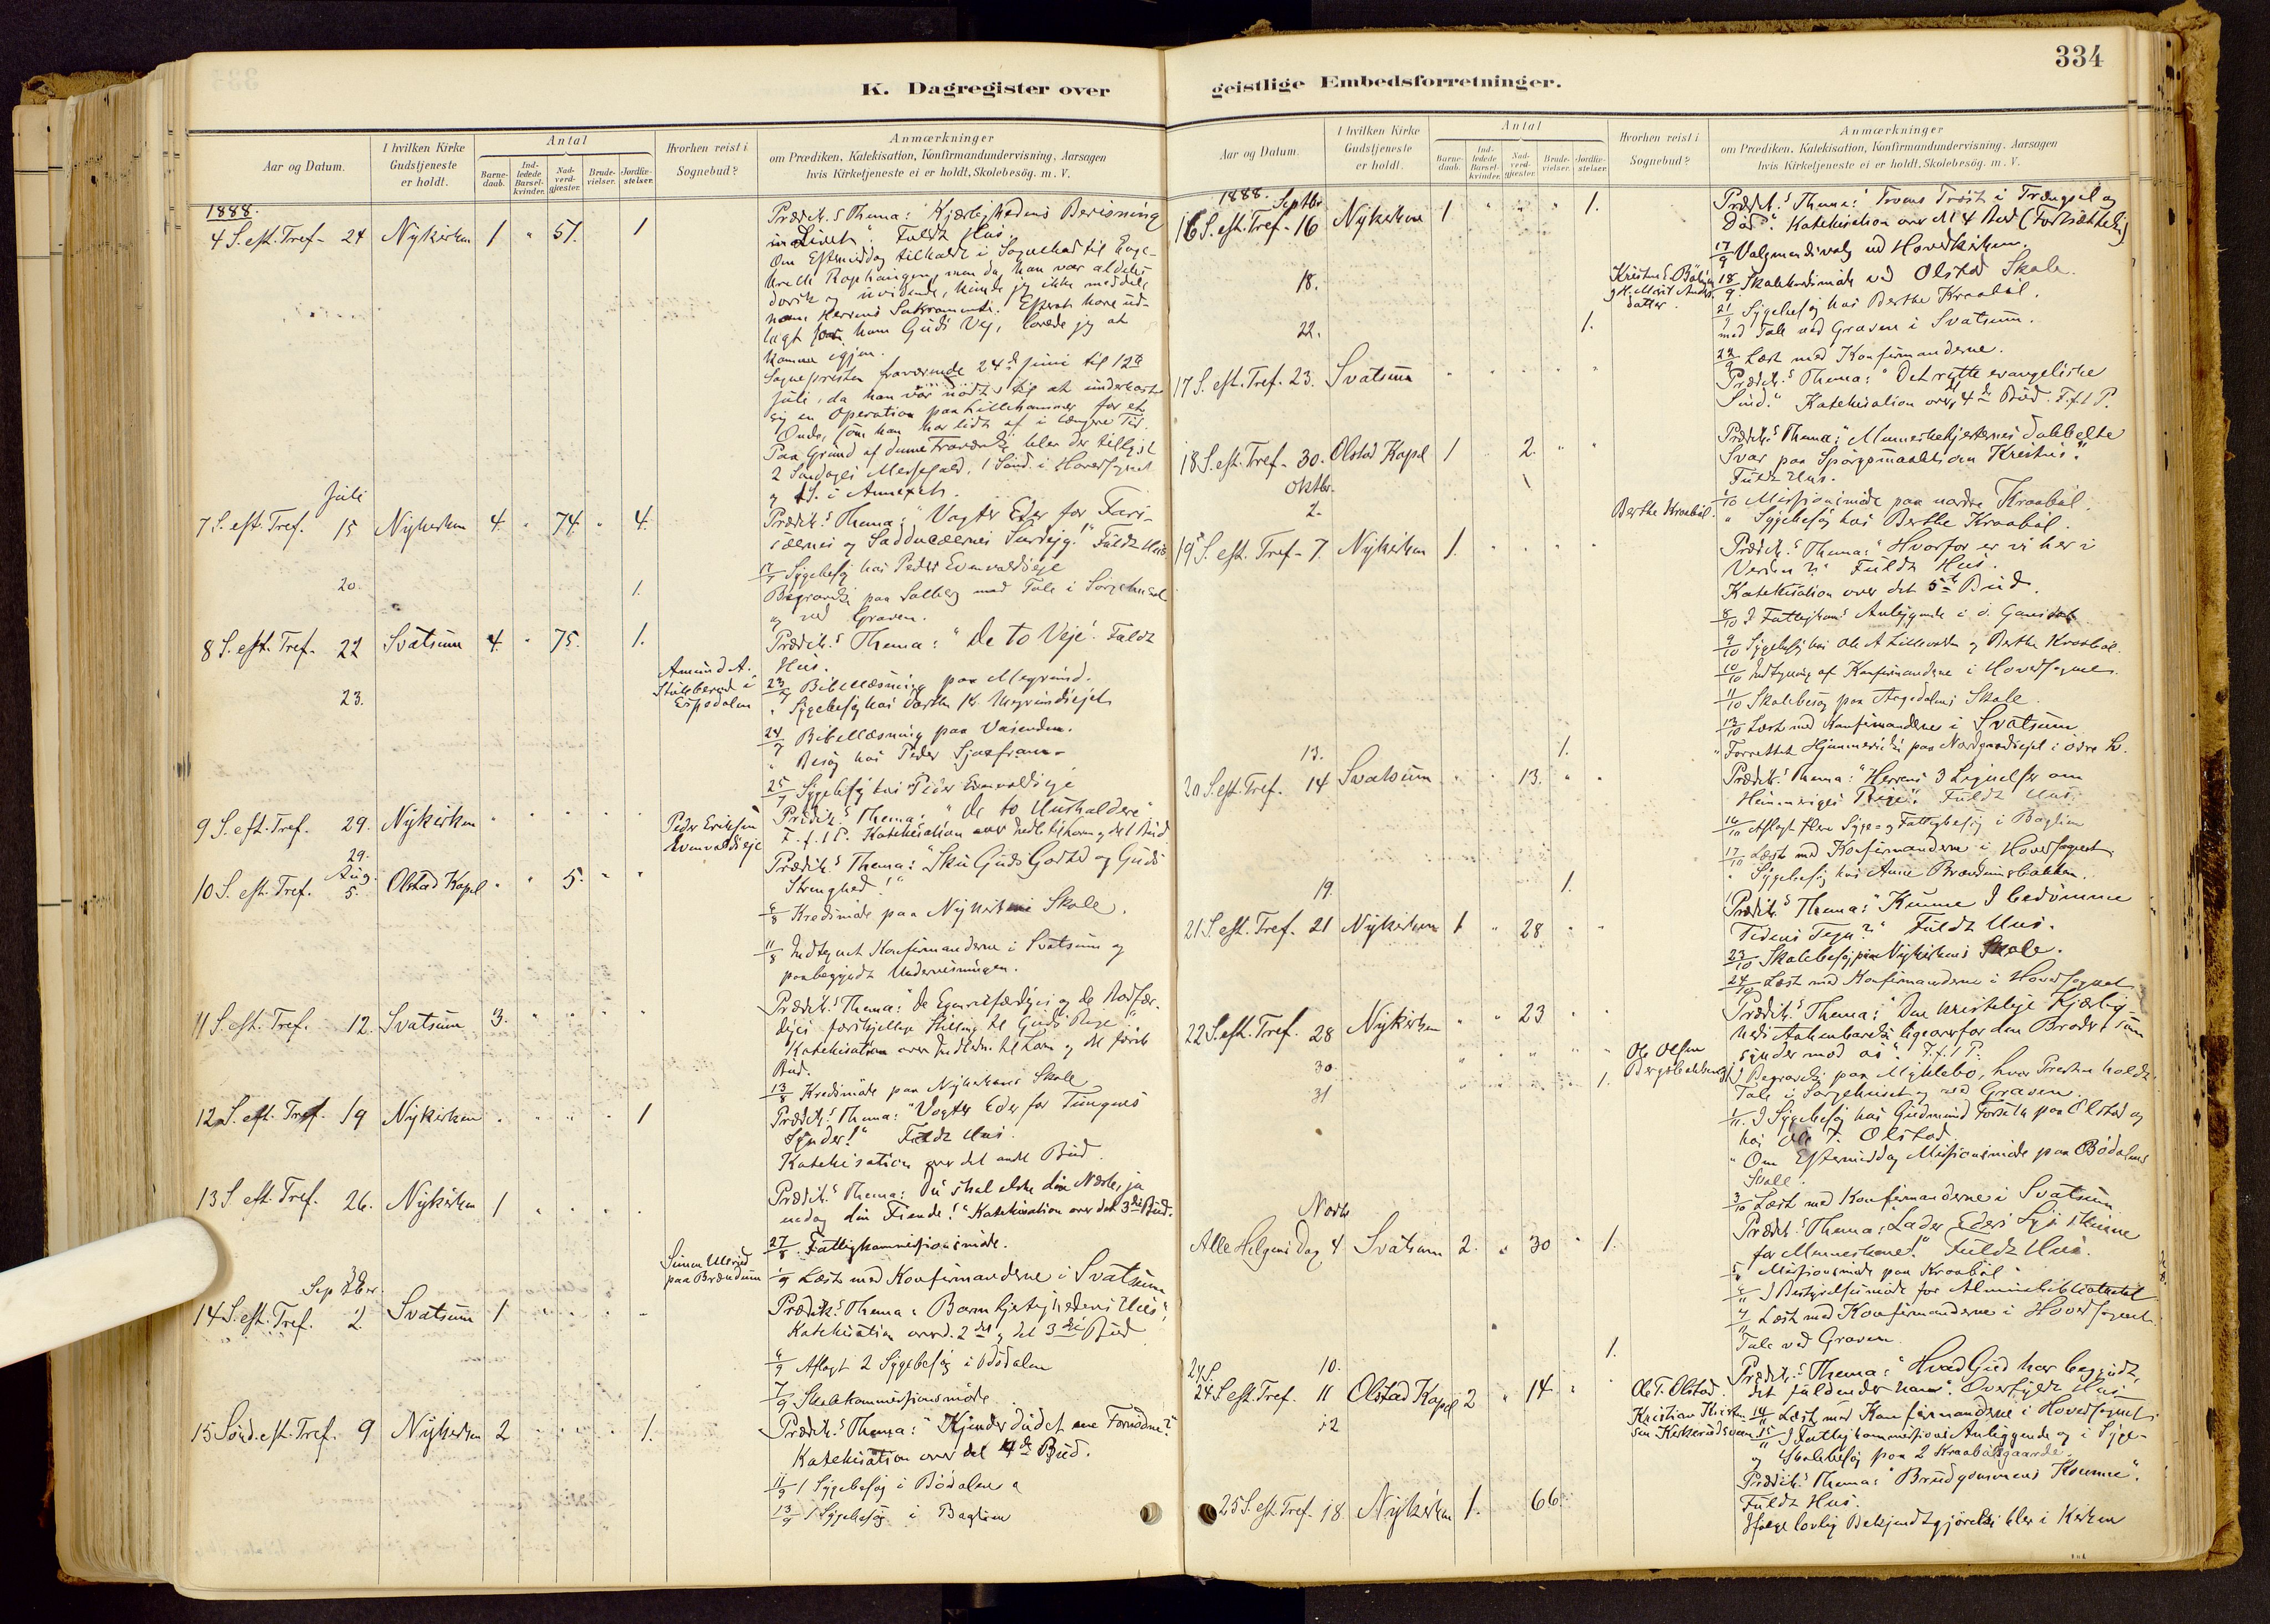 K. Dagregister over
Aar og Datum.
I hvilken Kirke
Gudstjeneste
er holdt.
Antal
Barne-
daab.
Ind-
ledede
Barsel-
kvinder.
Nad-
verd-
gjæster.
Brude-
vielser.
Jordfæ-
stelser.
Hvorhen reist i
Sognebud?
Anmærkninger
om Prædiken, Katekisation, Konfirmandundervisning, Aarsagen
hvis Kirketjeneste ei er holdt, Skolebesøg. m. V.
1888.
4 S. eft. Tref. 24 Nykirken 1 " 51. 1
Prædik.s Thema: "Kjærlighedens Bevisning
i Livet". Fuldt Hus.
Om Eftermiddag tilkaldt i Sognebud til
men da han var aldeles
døvsk og uvidende, kunde jeg ikke meddele
ham Herrens Sakramente. Efterat have ud-
lagt for ham Guds Vej, lovede jeg at
komme igjen.
Sognepresten fraværende 24de Juni til 12te
Juli, da han var nødt til at underkaste
sig en Operation paa Lillehammer for et
Onde, som han har lidt af i længere Tid.
Paa Grund af denne Fraværelse blev der tilligst
2 Søndages Messefald, 1 Sønd. i Hovedsognet
og 1 S. i Annexet.
Juli
7 S. eft. Tref. 15 Nykirken 4. " 74. " 4.
Prædik.s Thema: "Vogter Eder for Fari-
sæernes og Sadducæernes Surdejg!" Fuldt Hus
17/7 Sygebesøg hos Peder Evenvoldseje
20. 1.
Begravelse paa Solberg med Tale i Sørgehuset
og ved Graven.
8 S. eft. Tref. 22 Svatsum 4. " 75. 1.
Prædik.s Thema: "De to Veje". Fuldt
Hus.
23.
Amund A.
i
Espedalen
23/7 Bibellæsning paa Megrund.
" Sygebesøg hos Dorthe K. Megrundsejet
24/7 Bibellæsning paa Vasenden.
" Besøg hos Peder
25/7 Sygebesøg hos Peder Evenvoldseje
9 S. eft. Tref. 29. Nykirken
Prædik.s Thema: "De to Husholdere"
F. f. 1 P. Katekisation over Indl. til Loven og det 1 Bud
29.
Peder Eriksen
Evenvoldseje
Aug.
10 S. eft. Tref. 5. Olstad Kapel " " 5. " "
Prædik.s Thema: "Sku Guds Godhed og Guds
Strenghed!"
6/8 Kredsmøde paa Nykirkens Skole.
11/8 Indtegnet Konfirmanderne i Svatsum og
paabegyndt Undervisningen.
11 S. eft. Tref. 12. Svatsum 3. " " " "
Prædik.s Thema: "De Egenretfærdiges og de Bodfær-
diges forskjellige Stilling til Guds Rige"
Katekisation over Indledn. til Loven og det første
Bud.
13/8 Kredsmøde paa Nykirkens Skole
12 S. eft. Tref. 19 Nykirken " " " " 1
Prædik.s Thema: "Vogter Eder for Tungens
Synder!" Fuldt Hus.
Katekisation over det andet Bud.
13 S eft. Tref. 26. Nykirken 1 " " " "
Prædik.s Thema: "Du skal elske din Næste, ja
endog din Fiende!" Katekisation over det 3die Bud.
27/8 Fattigkommissionsmøde.
Simen Ulsrud
paa Brændum
1/9 Læst med Konfirmanderne i Svatsum
September
14 S. eft. Tref. 2 Svatsum 1 " " " "
Prædik.s Thema: "Barmhjertighedens Hus",
Katekisation over d. 2det og det 3die Bud
6/9 Aflagt 2 Sygebesøg i Bödalen
7/9 Skolekommissionsmøde
15 Sönd. eft. Tref. 9 Nykirken 2 " " " 1.
Prædik.s Thema: "Kjender du det ene Fornødne?"
Katekisation over det 4de Bud.
11/9 1 Sygebesøg i Bödalen
13/9 1 Sygebesøg i Baglien
334
geistlige Embedsforretninger.
Aar og Datum.
I hvilken Kirke
Gudstjeneste
er holdt.
Antal
Barne-
daab.
Ind-
ledede
Barsel-
kvinder.
Nad-
verd-
gjæster.
Brude-
vielser.
Jordfæ-
stelser.
Hvorhen reist i
Sognebud?
Anmærkninger
om Prædiken, Katekisation, Konfirmandundervisning, Aarsagen
hvis Kirketjeneste ei er holdt, Skolebesög. m. V.
1888. Septbr.
16 S. eft. Tref. 16 Nykirken 1 " " " 1.
Prædik.s Thema: "Troens Trøst i Trængsel og
Død". Katekisation over det 4 Bud (Fortsættelse)
17/9 Valgmandsvalg ved Hovedkirken.
18.
18/9 Skolekredsmøde ved Olstad Skole.
21/9 Sygebesøg hos Berthe Kraabøl.
22. 1.
med Tale ved Graven i Svatsum.
22/9 Læst med Konfirmanderne.
17 S. eft. Tref. 23. Svatsum
Prædik.s Thema: "Det rette evangeliske
Sind." Katekisation over 4de Bud. F. f. 1 P.
18 S. eft. Tref. 30. Olstad Kapel 1 2. " "
Prædik.s Thema: "Menneskehjerternes dobbelte
Svar paa Spørgsmaalet om Kristus."
Fuldt Hus.
Oktbr.
2.
Berthe Kraabøl.
1/10 Missionsmøde paa nordre Kraabøl.
" Sygebesøg hos Berthe Kraabøl.
19 S. eft. Tref. 7. Nykirken 1. " " " "
Prædik.s Thema: "Hvorfor er vi her i
Verden?" Fuldt Hus.
Katekisation over det 5te Bud.
8/10 I Fattigkoms Anliggende i ö. Gausdal
9/10 Sygebesøg hos Ole A. og Berthe Kraabøl.
10/10 Indtegning af Konfirmanderne i Hovedsognet.
11/10 Skolebesøg paa Aagedalens Skole.
13/10 Læst med Konfirmanderne i Svatsum
13. 1.
" Forrettet Hjemmevielse paa i övre Sv.
20 S. eft. Tref. 14 Svatsum " " 13. " "
Prædik.s Thema: "Herrens 3 Lignelser om
Himmeriges Rige". Fuldt Hus.
16/10 Aflagt flere Syge- og Fattigbesøg i Baglien
17/10 Læst med Konfirmanderne i Hovedsognet
" Sygebesøg hos Anne Brændumsbakken.
19. 1.
21 S. eft. Tref. 21 Nykirken 1 " 28 " "
Prædik.s Thema: "Kunne I bedømme
Tidens Tegn?" Fuldt Hus.
23/10 Skolebesøg paa Nykirkens Skole.
24/10 Læst med Konfirmanderne i Hovedsognet
22 S. eft. Tref. 28 Nykirken " " 23 " "
Prædik.s Thema: "Den kristelige Kjærlig-
heds Aabenbarelse ligeoverfor den Broder, som
synder mod os". F. f. 1 P.
30.
Ole Olsen
31 1.
Begravelse paa Myklebø, hvor Presten holdt
Tale i Sørgehuset og ved Graven.
1/11 I Sygebesøg hos Gudmund Forseth paa Olstad og
hos Ole T. Olstad.
" Om Eftermiddag Missionsmøde paa Bödalens
Skole.
3/10 Læst med Konfirmanderne i Svatsum
Novbr
Alle Helgens Dag 4 Svatsum 2. " 30 " 1.
Prædik.s Thema: "Lader Eders Lys skinne
for Menneskene!" Fuldt Hus.
5/11 Missionsmøde paa Kraabøl
6/11 I Bestyrelsesmøde for Almuebibliotheket
7/11 Læst med Konfirmanderne i Hovedsognet.
10. 1.
Tale ved Graven.
24 S.
24 S. eft. Tref. 11 Olstad Kapel 2 " 14 " "
Ole T. Olstad.
Prædik.s Thema: "Hvad Gud har begyndt,
det fuldender han". Overfyldt Hus
12
Kristian Kristen-
sen
14/11 Læst med Konfirmanderne i Hovedsognet.
15/11 I Fattigkommissions Anliggende og i Syge-
og Skolebesøg paa 2 Kraabølsgaarde
25 S. eft. Tref. 18. Nykirken 1. 66.
Prædik.s Thema: "Brudgommens Komme".
Fuldt Hus.
Ifølge lovlig Bekjendtgjørelse blev i Kirken